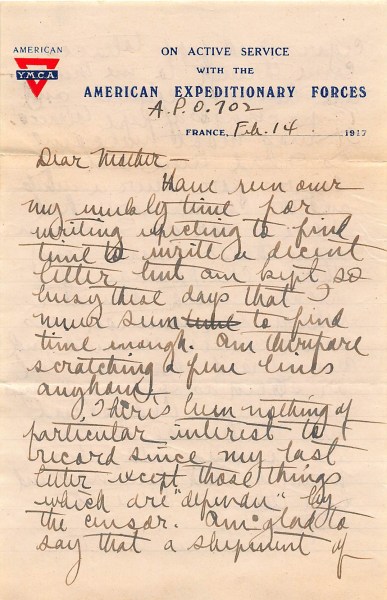 AMERICAN
Y.M.C.A
ON ACTIVE SERVICE
WITH THE
AMERICAN EXPEDITIONARY FORCES
A.P.O. 702
FRANCE, Feb. 14 1917
Dear Mother—
Have run over
my weekly time for
writing expecting to find
time to write a decent
letter but am kept so
busy these days that I
never seem to find
time enough. Am therefore
scratching a few lines
anyhow.
There's been nothing of
particular interest to
record since my last
letter except those things
which are "defendu" by
the censor. Am glad to
say that a shipment of